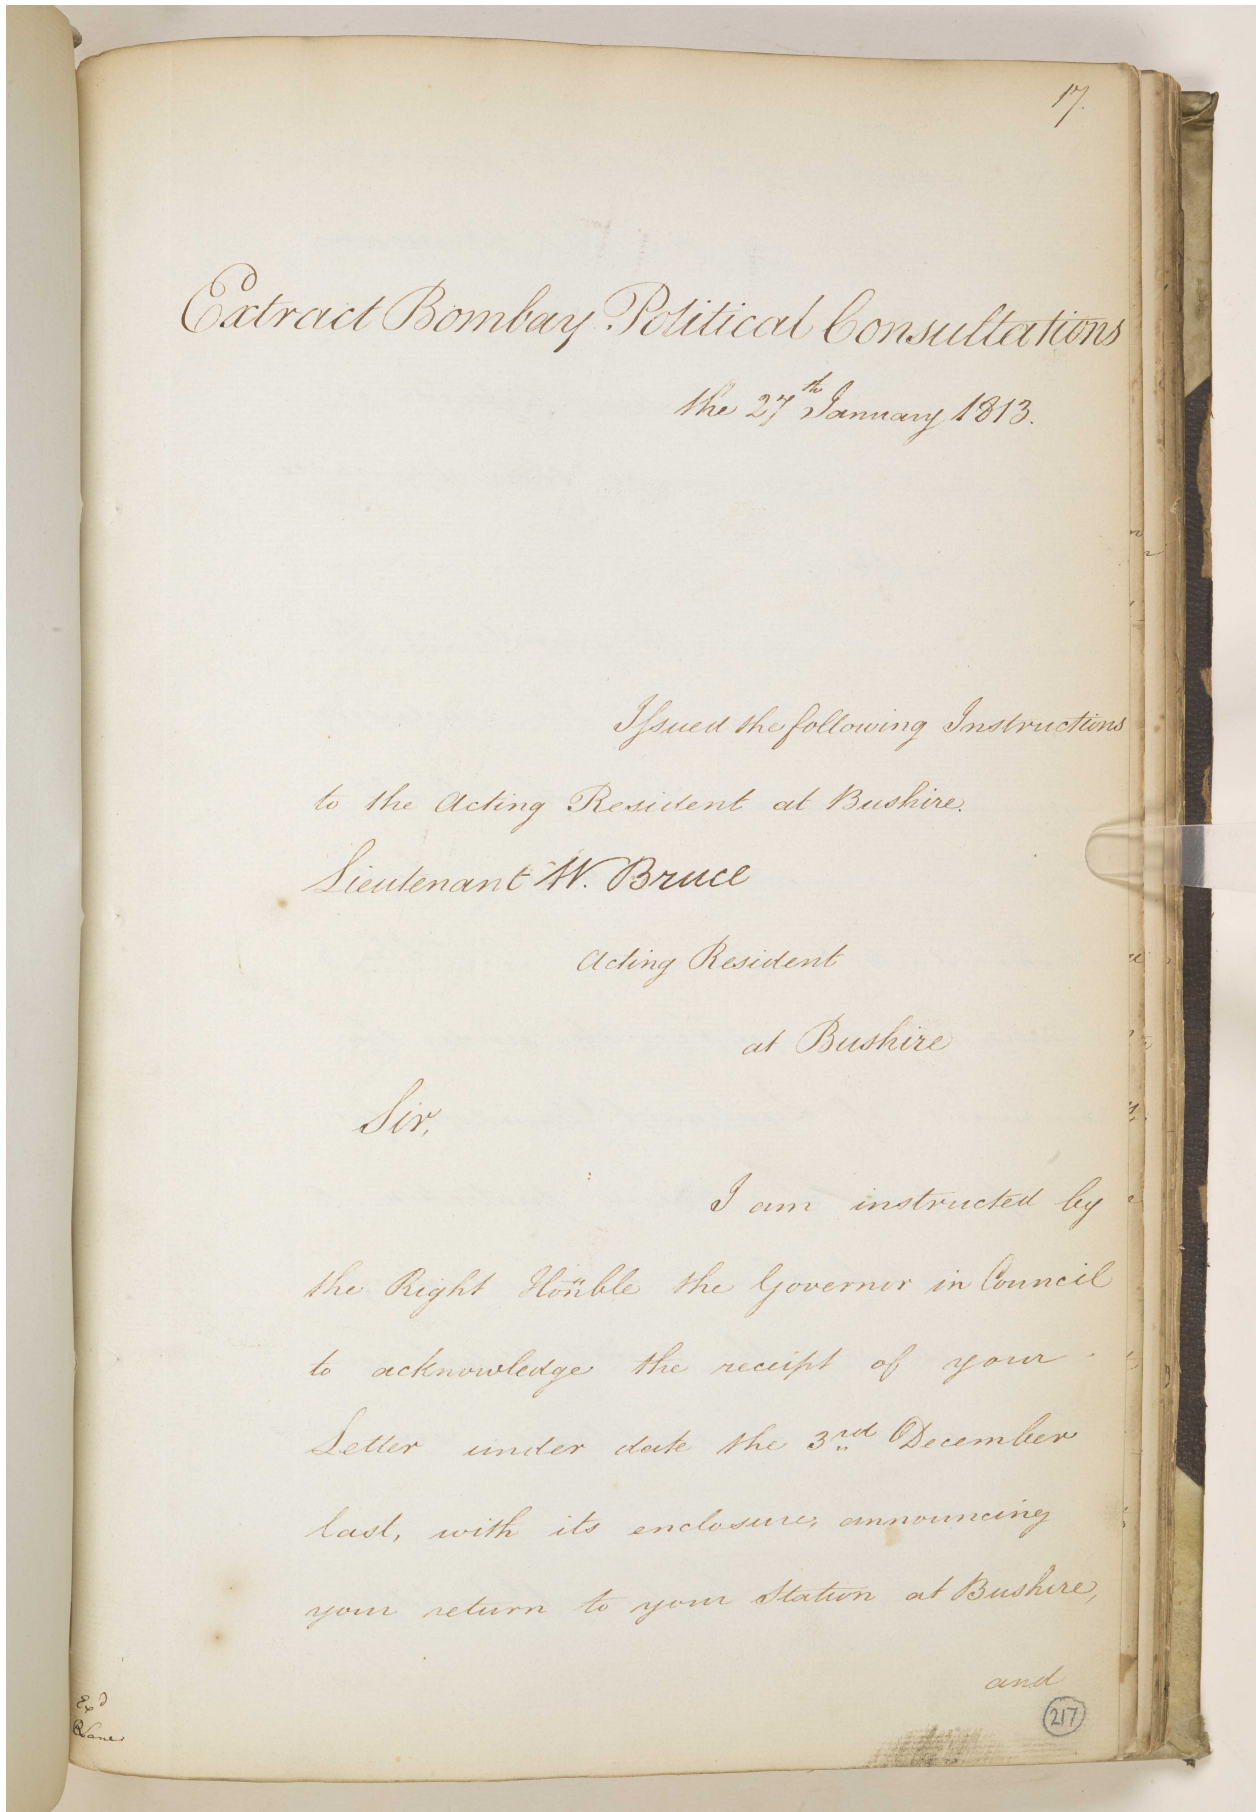 17.
Extract Bombay Political Consultations
the 27th January 1813.
Issued the following Instructions
to the Acting Resident at Bushire.
Lieutenant W. Bruce
Acting Resident
at Bushire
Sir,
I am instructed by
the Right Honble the Governor in Council
to acknowledge the receipt of your
Letter under date the 3rd December
last, with its enclosure, announcing
your return to your Station at Bushire,
and
217
Exd
RLane